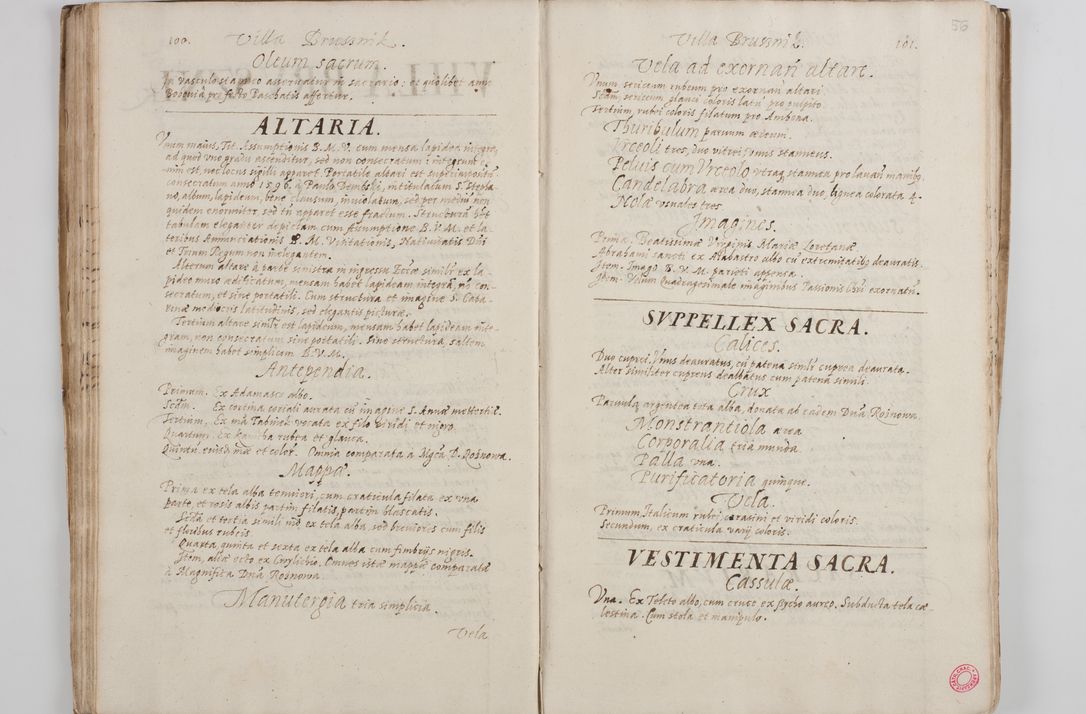 100. Villa Brusnik.
Oleum sacrum.
In vasculo stanneo asservatur in sacrario: et quolibet anno
Bobovia pro festo Paschatis affertur.
ALTARIA.
Vnum maius, Tit. Assumptionis B.M.V. cum mensa lapidea integra,
ad quod vno gradu ascenditur, sed non consecratum: integrum e-
nim est, nec locus sigilli apparet. Portatile altari est superimpositũ
consecratum anno 1596. a Paulo Dembski, intitulatum S. Stepha-
no, album, lapideum, bene clausum, inviolatum, sed per mediũ non
quidem enormiter, sed tñ apparet esse fractum. Structurã het
tabulam eleganter depictam cum Assumptione B.V.M. et la-
teribus Annunciationis B.M. Visitationis, Nativitatis Dñi
et Trium Regum non inelegantem.
Alterum altare à parte sinistra in ingressu Eccæ similr ex la-
pidee muro ædificatum, mensam habet lapideam integrã, nõ con-
secratum, et sine portatili. Cum structura et imagine S. Catha-
rinæ mediocris latitudinis, sed elegantis picturæ.
Tertium altare similr est lapideum, mensam habet lapideam inte-
gram, non consecratum sine portatili. Sine structura, saltem
imaginem habet simplicem B.V.M.
Antependia.
Primum. Ex Adamasco albo.
Scdm. Ex cortina coriali aurata cũ imagine S. Annæ mettertiæ.
Tertium, Ex mã Tabinek vocata ex filo viridi et nigro.
Quartum. Ex kanicha rubea et glauca.
Quintũ. eiusd. mæ et color. Omnia comparata a Mgca D. Rosnowa.
Mappæ.
Prima ex tela alba tenuiori, cum craticula filata ex vna
parte, et rosis albis partim filatis, partim blascatis.
Scda et tertia simili mõ ex tela alba, sed breviores cum filis
et floribus rubeis
Quarta, quinta et sexta ex tela alba cum fimbrijs nigris.
Item, aliæ octo ex Cwylichio. Omnes istæ mappæ comparatæ
à Magnifica Dnã Rosnowa.
Manutergia tria simplicia.
Vela
56
Villa Brusnik. 101.
Vela ad exornañ altare.
Vnum sericeum rubeum pro exornañ altari
Scdm, sericeum glauci coloris latũ pro pulpito
Tertium, rubei coloris filatum pro Ambona.
Thuribulum parvum æreum.
Vrceoli tres, duo vitrei, vnus stanneus.
Peluis cum Vrceolo vtraq stannea pro lavañ manibꝯ
Candelabra ærea duo, stannea duo, lignea colorata 4.
Nolæ vsuales tres.
Imagines.
Prima, Beatissimæ Virginis Mariæ Loretanæ
Abrahami sancti ex Alabastro albo cũ extremitatibꝯ deauratis.
Item. Imago B.V.M. parieti appensa.
Item. Velum Quadragesimale imaginibus Passionis Chri exornatũ.
SVPPELLEX SACRA.
Calices.
Duo cuprei, Vnus deauratus, cũ patena similr cuprea deaurata.
Alter similiter cupreus dealbatus cum patena simili.
Crux
Parvula argentea tota alba, donata ab eadem Dnã Rosnowa.
Monstrantiola ærea
Corporalia tria munda.
Palla vna.
Purificatoria quinque.
Vela.
Primum, Italicum rubei, carasini et viridi coloris.
Secundum, ex craticula varij coloris.
VESTIMENTA SACRA.
Cassulæ.
Vna. Ex Teleto albo, cum cruce ex psycho aureo. Subducta tela cæ-
lestina. Cum stola et manipulo.